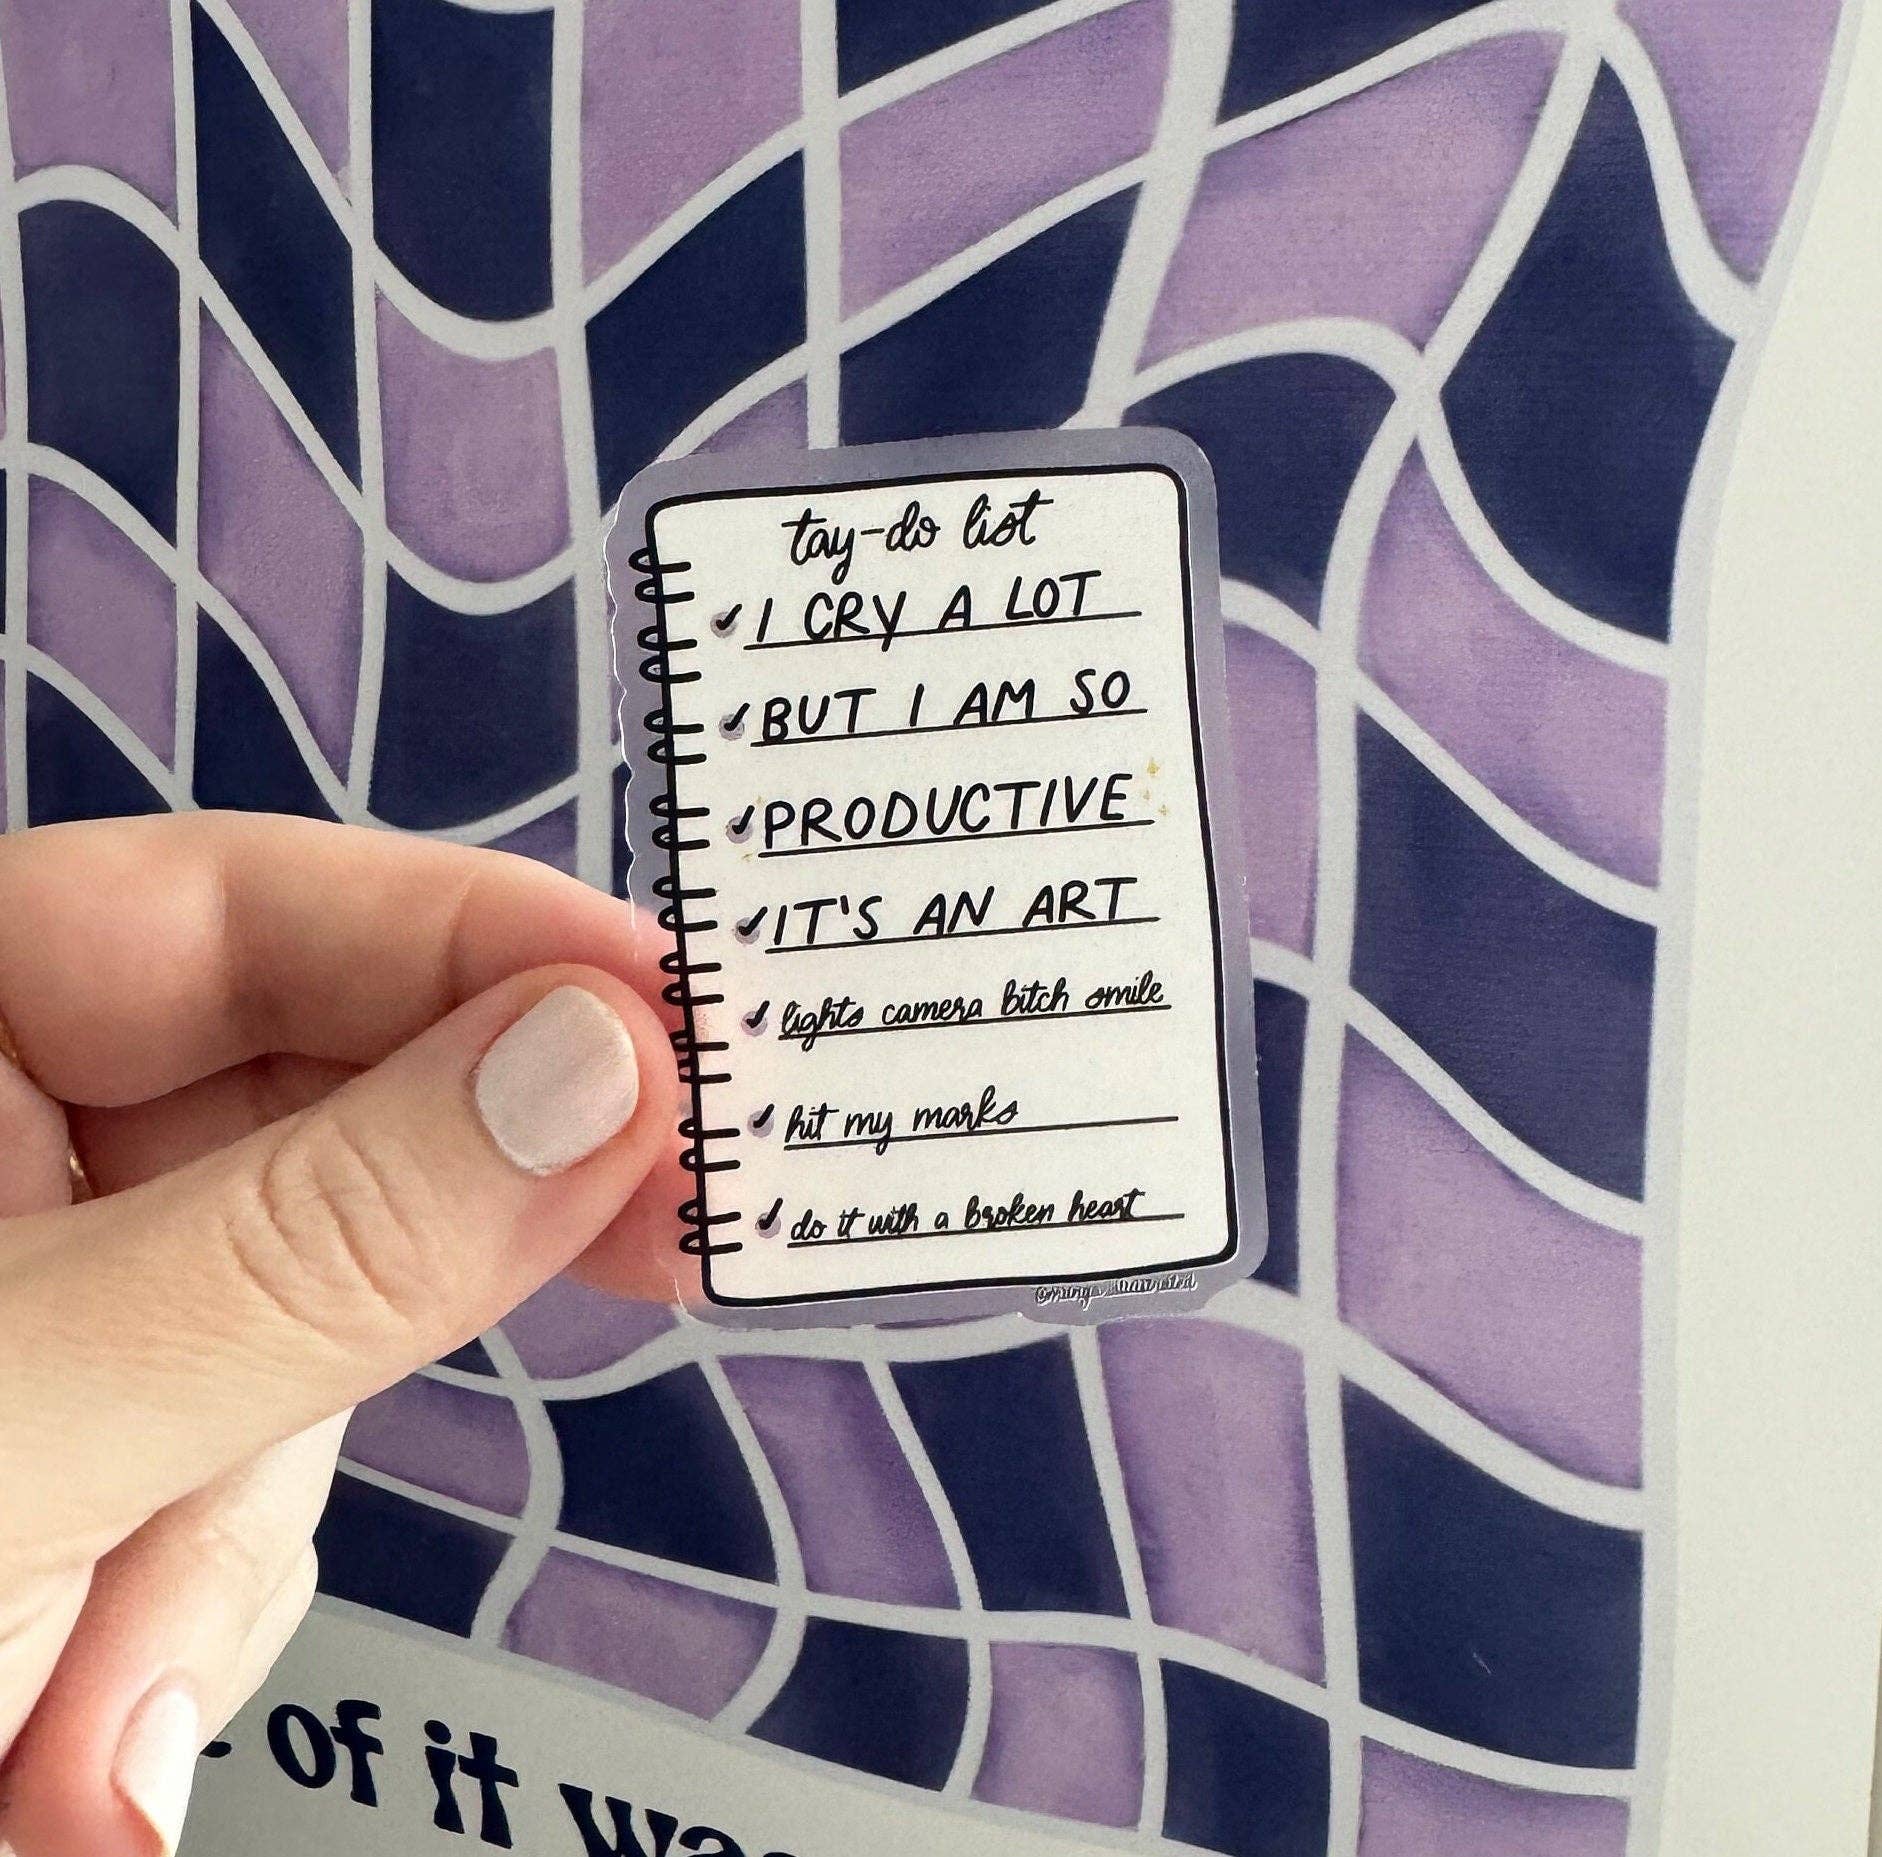 tay-do list
I CRY A LOT
BUT I AM SO
PRODUCTIVE
IT'S AN ART
lights camera bitch smile
hit my marks
do it with a broken heart
of it was